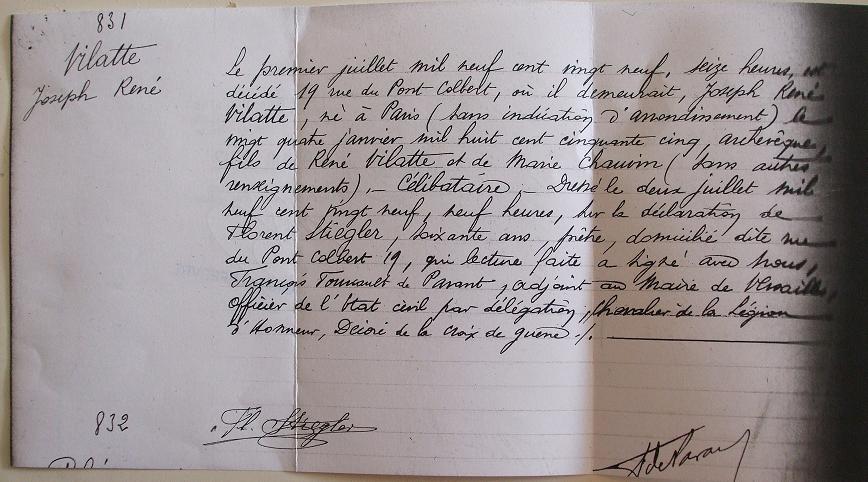 831
Vilatte
Joseph René
Le premier juillet mil neuf cent vingt neuf, seize heures, est
décédé 19 rue du Pont Colbert, où il demeurait, Joseph René
Vilatte, né à Paris (sans indication d'arrondissement) le
vingt quatre janvier mil huit cent cinquante cinq, archevêque,
fils de René Vilatte et de Marie Chauvin (sans autres
renseignements). — Célibataire — Dressé le deux juillet mil
neuf cent vingt neuf, neuf heures, sur la déclaration de
Florent Stiegler, soixante ans, prêtre, domicilié dite rue
du Pont Colbert 19, qui lecture faite a signé avec Nous,
François de Parant, adjoint au Maire de Versailles,
officier de l'Etat civil par délégation, Chevalier de la Légion
d'Honneur, Décoré de la croix de guerre ./.
832
Fl. Stiegler